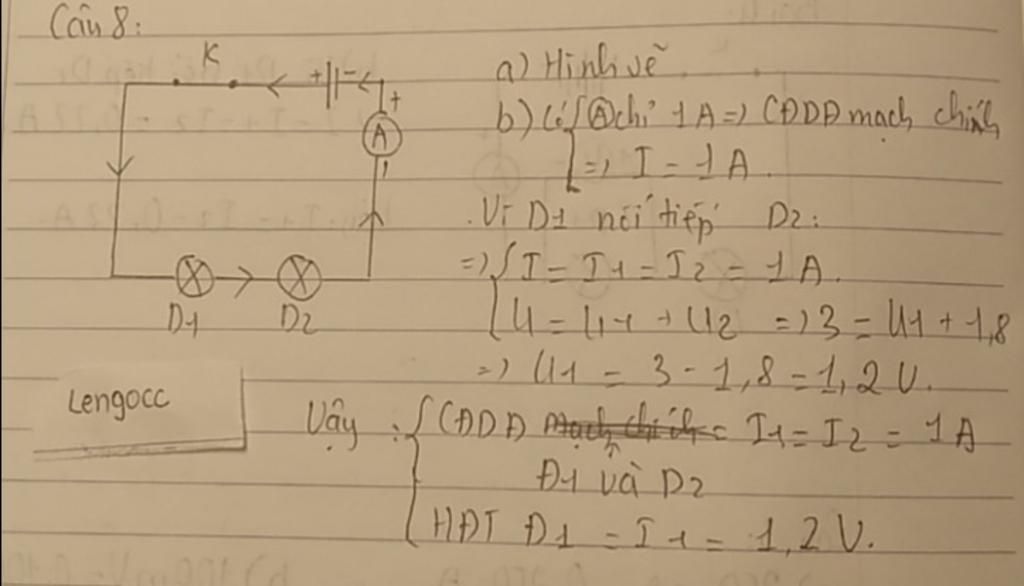 Câu 8:
K
+ -
+
A
-
Đ1 Đ2
Lengocc
a) Hình vẽ
b) Có { Ⓐ chỉ 1A => CĐDĐ mạch chính
=> I = 1A.
Vì Đ1 nối tiếp Đ2:
=> { I = I1 = I2 = 1A.
U = U1 + U2 => 3 = U1 + 1,8
=> U1 = 3 - 1,8 = 1,2 V.
Vậy : { CĐDĐ mạch chính = I1 = I2 = 1A
Đ1 và Đ2
HĐT Đ1 = I1 = 1,2 V.